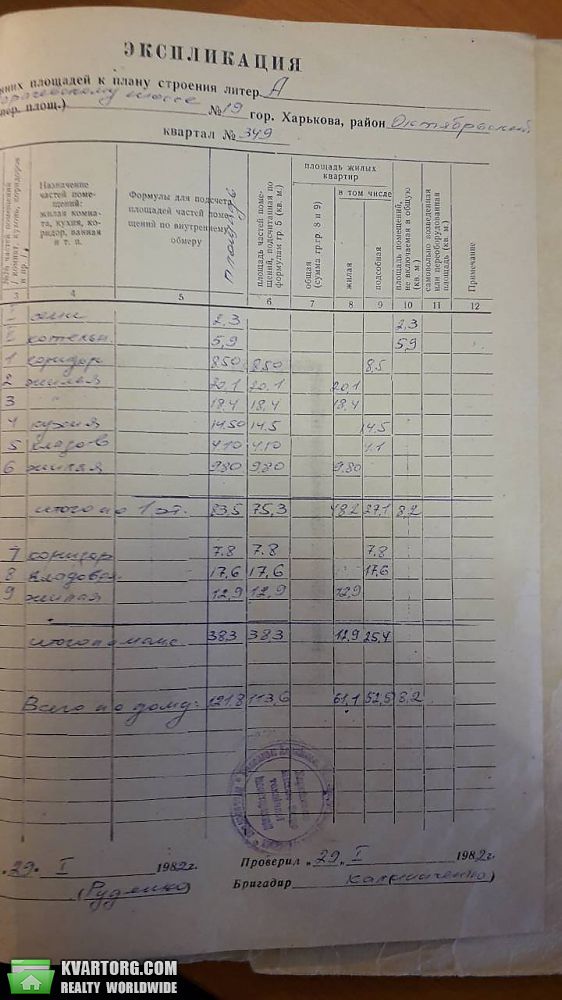 ЭКСПЛИКАЦИЯ
площадей к плану строения литер А
шоссе № 19 гор. Харькова, район Октябрьский
пер. площ.)
квартал № 349
Назначение частей помещений: жилая комната, кухня, коридор, ванная и т. п.
Формулы для подсчета площадей частей помещений по внутреннему обмеру
площадь
площадь частей помещений, подсчитанная по формулам гр. 5 (кв. м.)
площадь жилых квартир
общая (сумма гр.гр. 8 и 9)
в том числе
жилая
подсобная
площадь помещений, не включаемая в общую (кв. м.)
самовольно возведенная или переоборудованная площадь (кв. м.)
Примечание
3 4 5 6 7 8 9 10 11 12
сени 2,3 2,3
котельн. 5,9 5,9
1 коридор 8.50 8.50 8.5
2 жилая 20,1 20,1 20,1
3 " 18,4 18,4 18,4
4 кухня 14.50 14.5 14.5
5 кладов 4.10 4.10 4.1
6 жилая 9.80 9.80 9.80
итого по 1 эт. 83,5 75,3 48.2 27,1 8,2
7 коридор 7.8 7.8 7.8
8 кладовая 17,6 17,6 17,6
9 жилая 12,9 12,9 12,9
итого по манс. 38.3 38.3 12.9 25.4
Всего по дому: 121,8 113,6 61,1 52,5 8,2
29. I 1982 г.
Проверил „29„ I 1982 г.
(Руденко)
Бригадир
KVARTORG.COM
REALTY WORLDWIDE